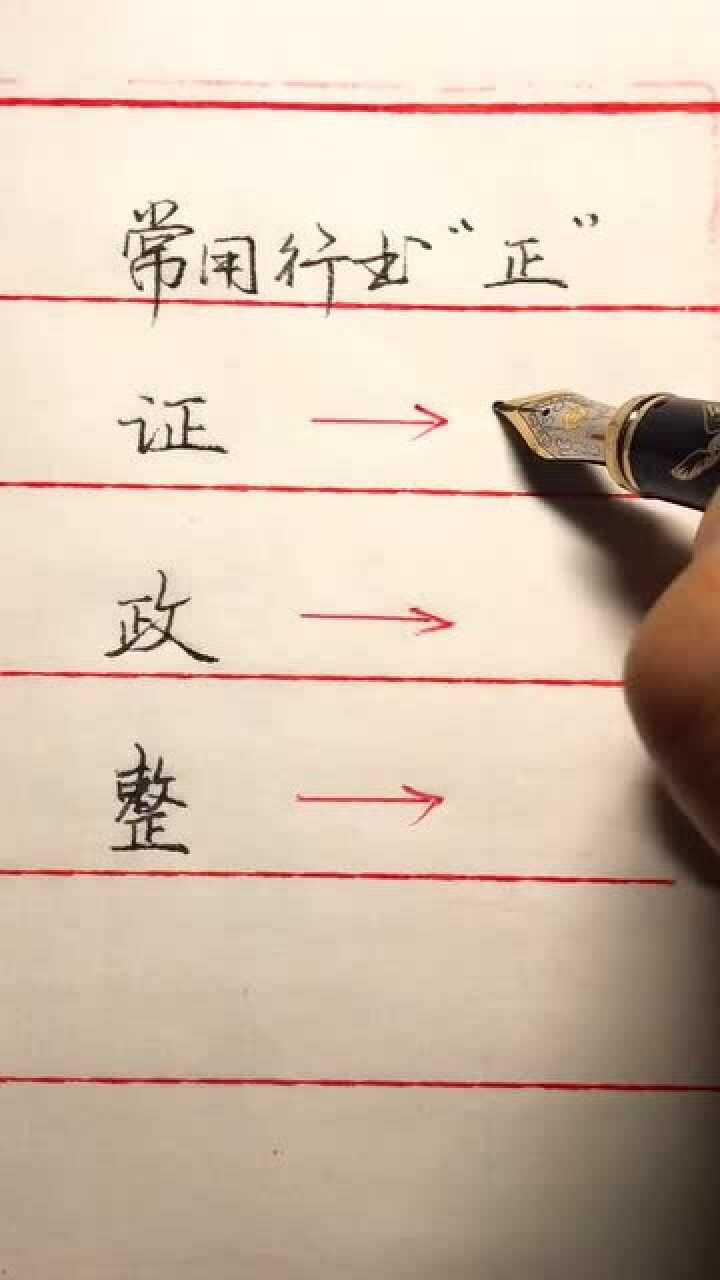 常用行书“正”
证 →
政 →
整 →